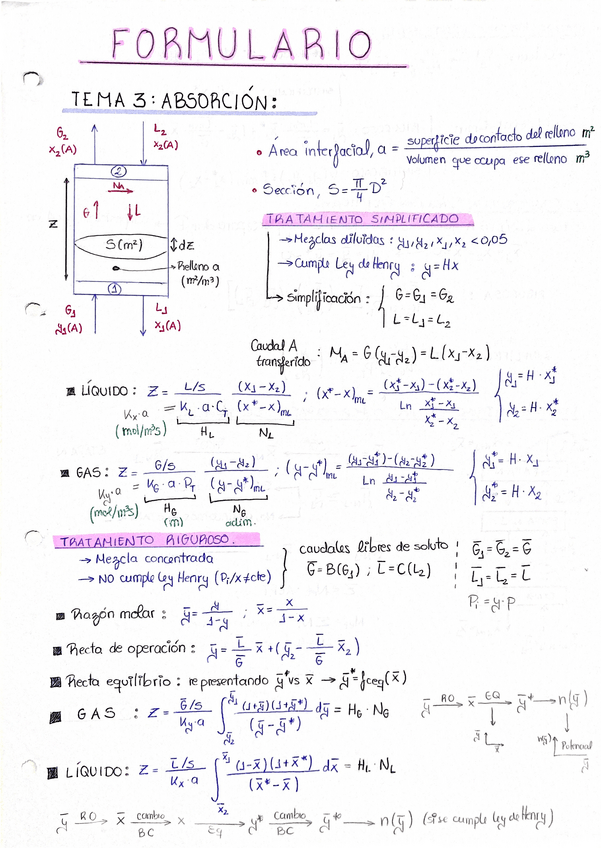 FORMULARIO
TEMA 3: ABSORCIÓN:
G₂ L₂
x₂(A) x₂(A)
(2)
N_A
G↑ ↓L
Z
S(m²) ↕dz
Relleno a
(m²/m³)
(1)
G₁ L₁
y₁(A) x₁(A)
• Área interfacial, a = superficie de contacto del relleno m² / volumen que ocupa ese relleno m³
• Sección, S = π/4 D²
TRATAMIENTO SIMPLIFICADO
→ Mezclas diluidas: y₁, y₂, x₁, x₂ < 0,05
→ Cumple Ley de Henry: y = Hx
→ Simplificación: { G = G₁ = G₂
L = L₁ = L₂
Caudal A transferido: M_A = G(y₁-y₂) = L(x₁-x₂)
■ LÍQUIDO: Z = L/S / K_L·a·C_T (x₁-x₂) / (x*-x)_mL ; (x*-x)_mL = (x₁*-x₁)-(x₂*-x₂) / Ln x₁*-x₁ / x₂*-x₂ { y₁ = H·x₁*
y₂ = H·x₂*
Kx·a =
(mol/m³s) H_L N_L
■ GAS: Z = G/S / K_G·a·P_T (y₁-y₂) / (y-y*)_mL ; (y-y*)_mL = (y₁-y₁*)-(y₂-y₂*) / Ln y₁-y₁* / y₂-y₂* { y₁* = H·x₁
y₂* = H·x₂
Ky·a =
(mol/m³s) H_G N_G
(m) adim.
TRATAMIENTO RIGUROSO.
→ Mezcla concentrada
→ NO cumple Ley Henry (Pi/x≠cte)
} caudales libres de soluto
G̅ = B(G₁) ; L̅ = C(L₂)
G̅₁ = G̅₂ = G̅
L̅₁ = L̅₂ = L̅
Pi = y·P
■ Razón molar: y̅ = y / 1-y ; x̅ = x / 1-x
■ Recta de operación: y̅ = L̅/G̅ x̅ + (y̅₂ - L̅/G̅ x̅₂)
■ Recta equilibrio: representando y̅* vs x̅ → y̅* = fceq(x̅)
■ GAS: Z = G̅/S / Ky·a ∫ y̅₂ y̅₁ (1+y̅)(1+y̅*) / (y̅-y̅*) dy̅ = H_G·N_G
y̅ RO→ x̅ EQ→ y̅* → n(y̅)
y̅ x̅
n(y̅) Potencial
y̅
■ LÍQUIDO: Z = L̅/S / Kx·a ∫ x̅₂ x̅₁ (1-x̅)(1+x̅*) / (x̅*-x̅) dx̅ = H_L·N_L
y̅ RO→ x̅ cambio BC→ x Eq→ y* Cambio BC→ y̅* → n(y̅) (si se cumple ley de Henry)